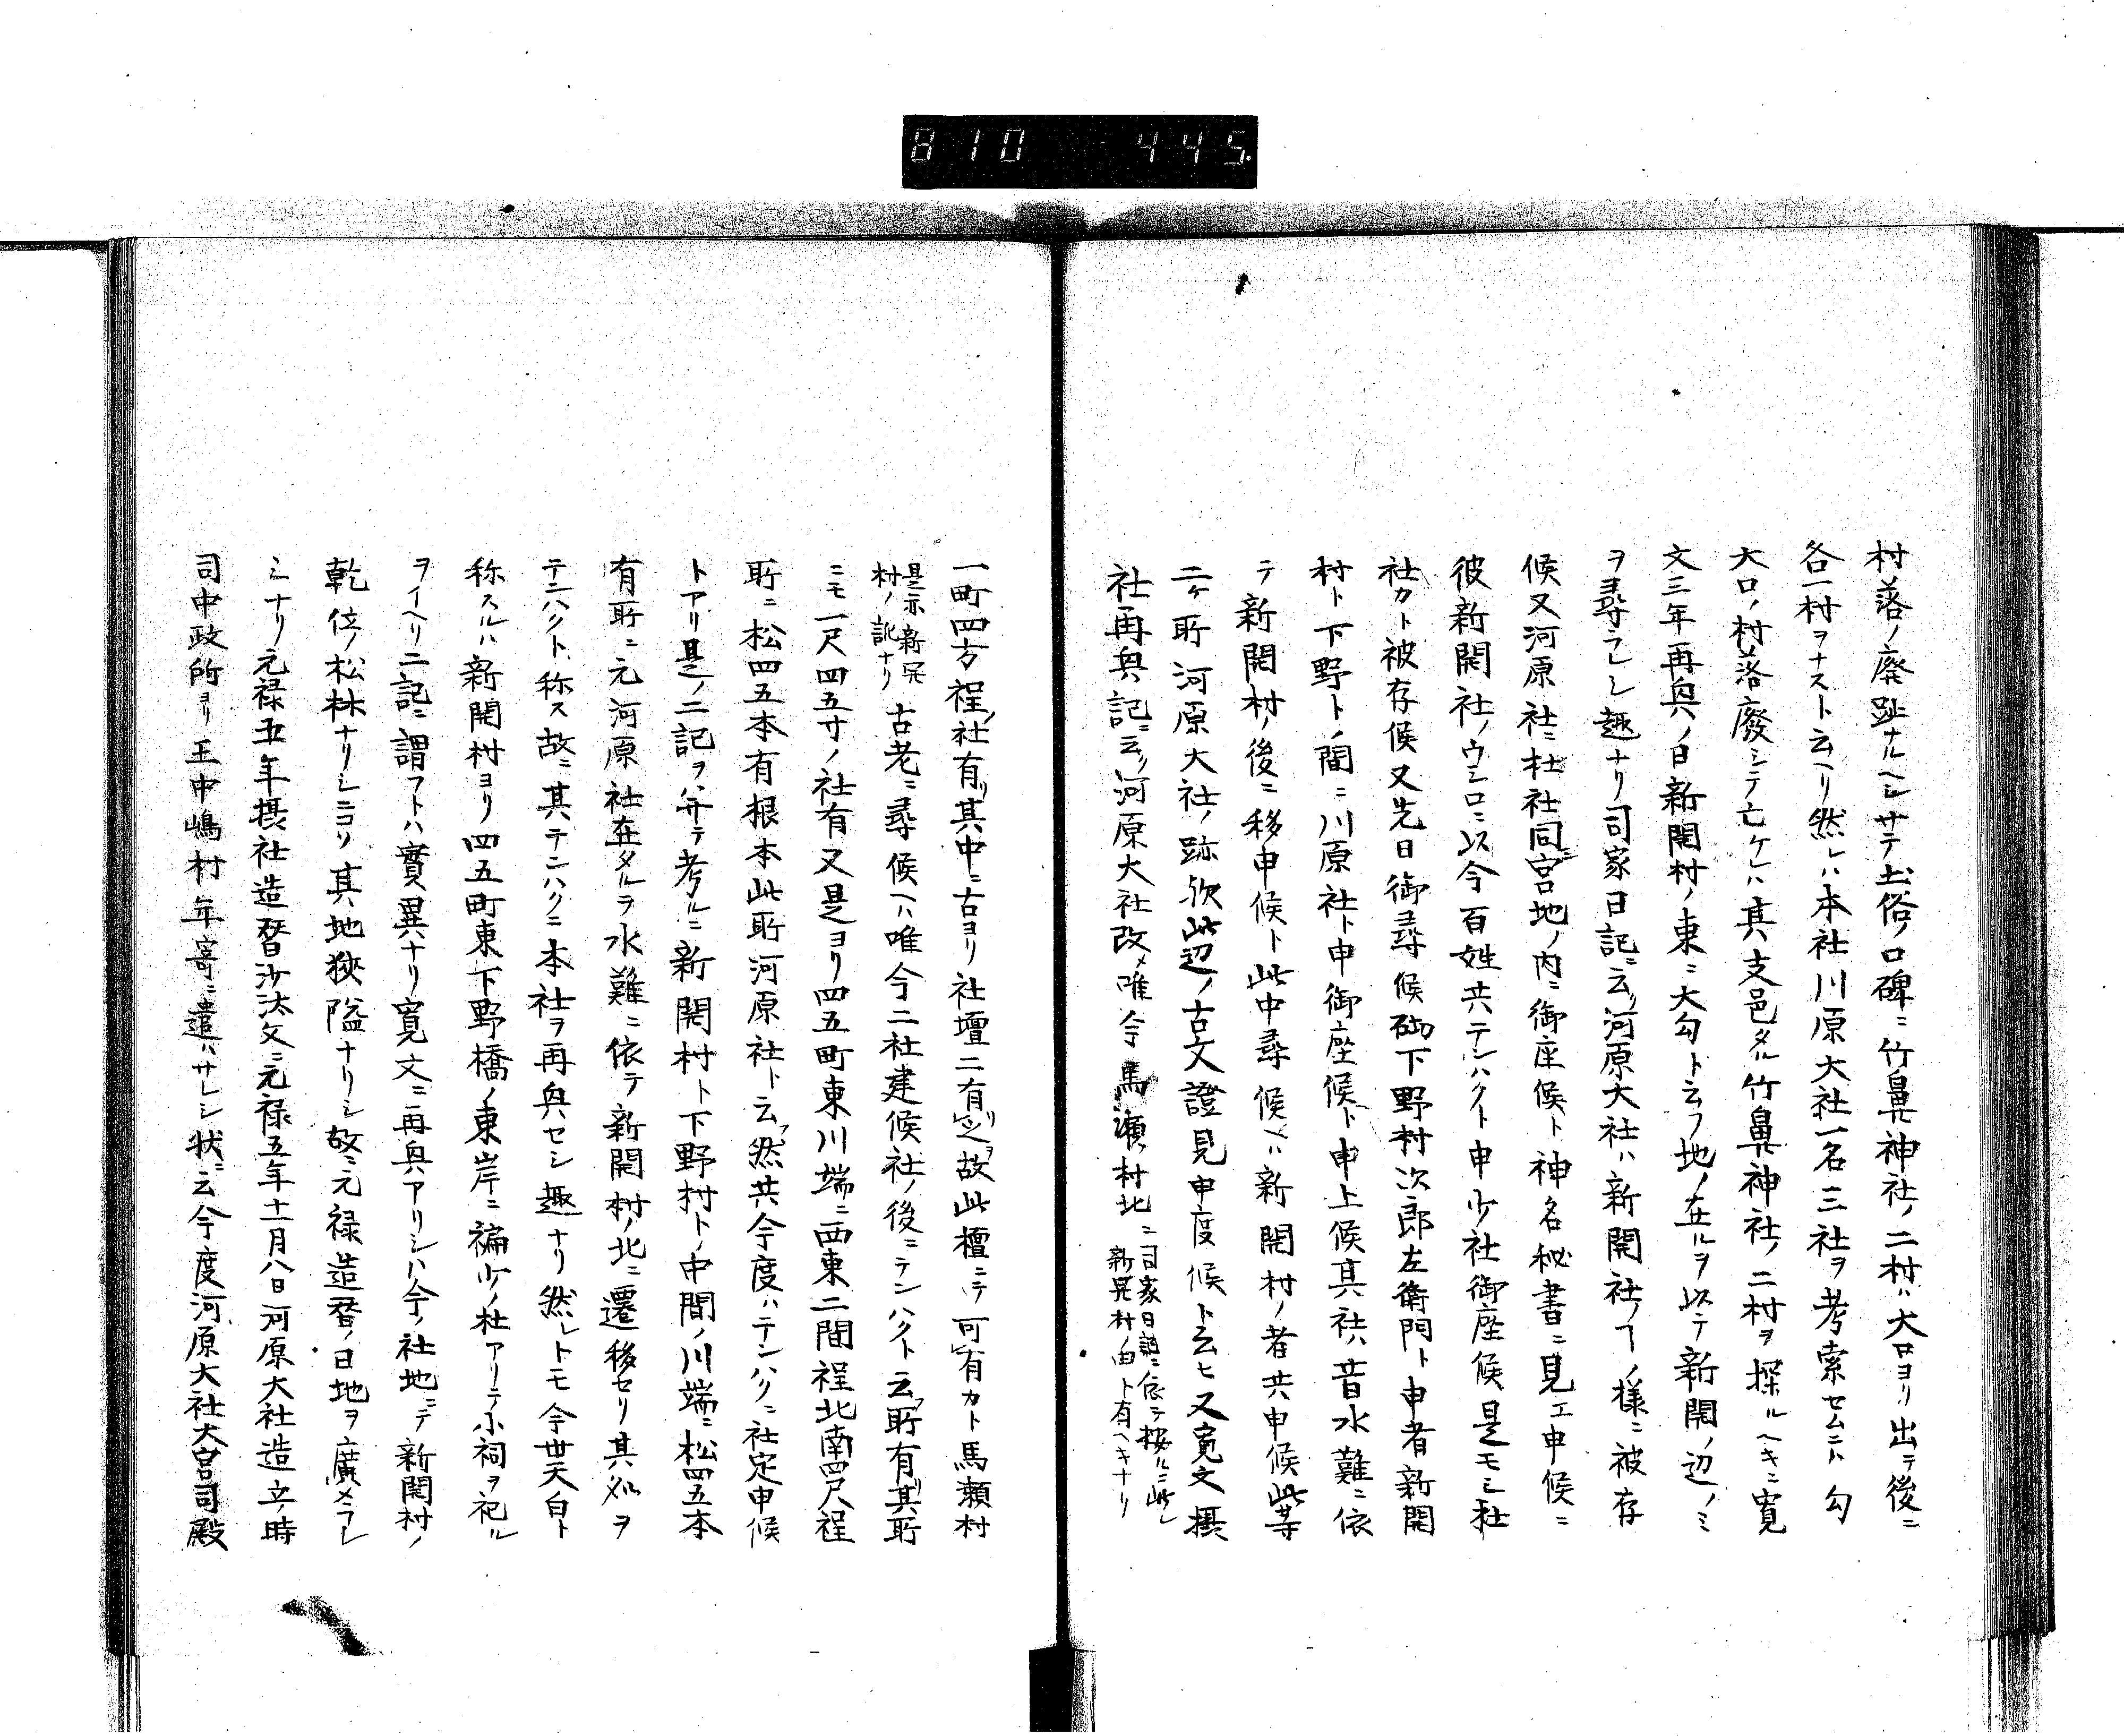 810 445.
村落ノ廃趾ナルヘシサテ土俗ノ口碑ニ竹鼻神社ノ二村ハ大口ヨリ出テ後ニ
各一村ヲナスト云ヘリ然レハ本社川原大社一名三社ヲ考索セムニハ勾
大口ノ村落廃シテ亡ケレハ其支邑タル竹鼻神社ノ二村ヲ探ルヘキニ寛
文三年再興ノ日新開村ノ東ニ大勾ト云フ地ノ在ルヲ以テ新開ノ辺ノミ
ヲ尋ラレシ趣ナリ司家日記ニ云ク河原大社ハ新開社ノヿノ様ニ被存
候又河原社ニ社社同宮地ノ内ニ御座候ト神名秘書ニ見エ申候ニ
彼新開社ノウシロニ以今百姓共テンハクト申少社御座候是モシ社
社カト被存候又先日御尋候砌下野村次郎左衛門ト申者新開
村ト下野トノ間ニ川原社ト申御座候ト申上候其社ハ昔水難ニ依
テ新開村ノ後ニ移申候ト此中尋候ヘハ新開村ノ者共申候此等
二ケ所河原大社ノ跡欤此辺ノ古文證見申度候ト云ヒ又寛文摂
社再興記ニ云ク河原大社改メ唯今馬瀬村北ニ司家日記ニ依テ按ルニ此レ
新開村ノ由ト有ヘキナリ
一町四方程ノ社有リ其中ニ古ヨリ社壇二有之故此檀ニテ可有カト馬瀬村
是亦新開
村ノ訛ナリ古老ニ尋候ヘハ唯今二社建候社ノ後ニテンハクト云所有其所
ニモ一尺四五寸ノ社有又是ヨリ四五町東川端ニ西東二間程北南四尺程
所ニ松四五本有根本此所河原社ト云フ然共今度ハテンハクニ社定申候
トアリ是ノ二記ヲ并テ考ルニ新開村ト下野村トノ中間ノ川端ニ松四五本
有所ニ元河原社在タルヲ水難ニ依テ新開村ノ北ニ遷移セリ其処ヲ
テンハクト称ス故ニ其テンハクニ本社ヲ再興セシ趣ナリ然レトモ今世天白ト
称スルハ新開村ヨリ四五町東下野橋ノ東岸ニ褊少ノ杜アリテ小祠ヲ祀ル
ヲイヘリ二記ニ謂フトハ實異ナリ寛文ニ再興アリシハ今ノ社地ニテ新開村ノ
乾位ノ松林ナリシニコソ其地狭隘ナリシ故ニ元禄造替ノ日地ヲ廣メラレ
シナリ元禄五年摂社造替沙汰文ニ元禄五年十一月八日河原大社造立ノ時
司中政所ヨリ王中嶋村年寄ニ遣ハサレシ状ニ云今度河原大社大宮司殿